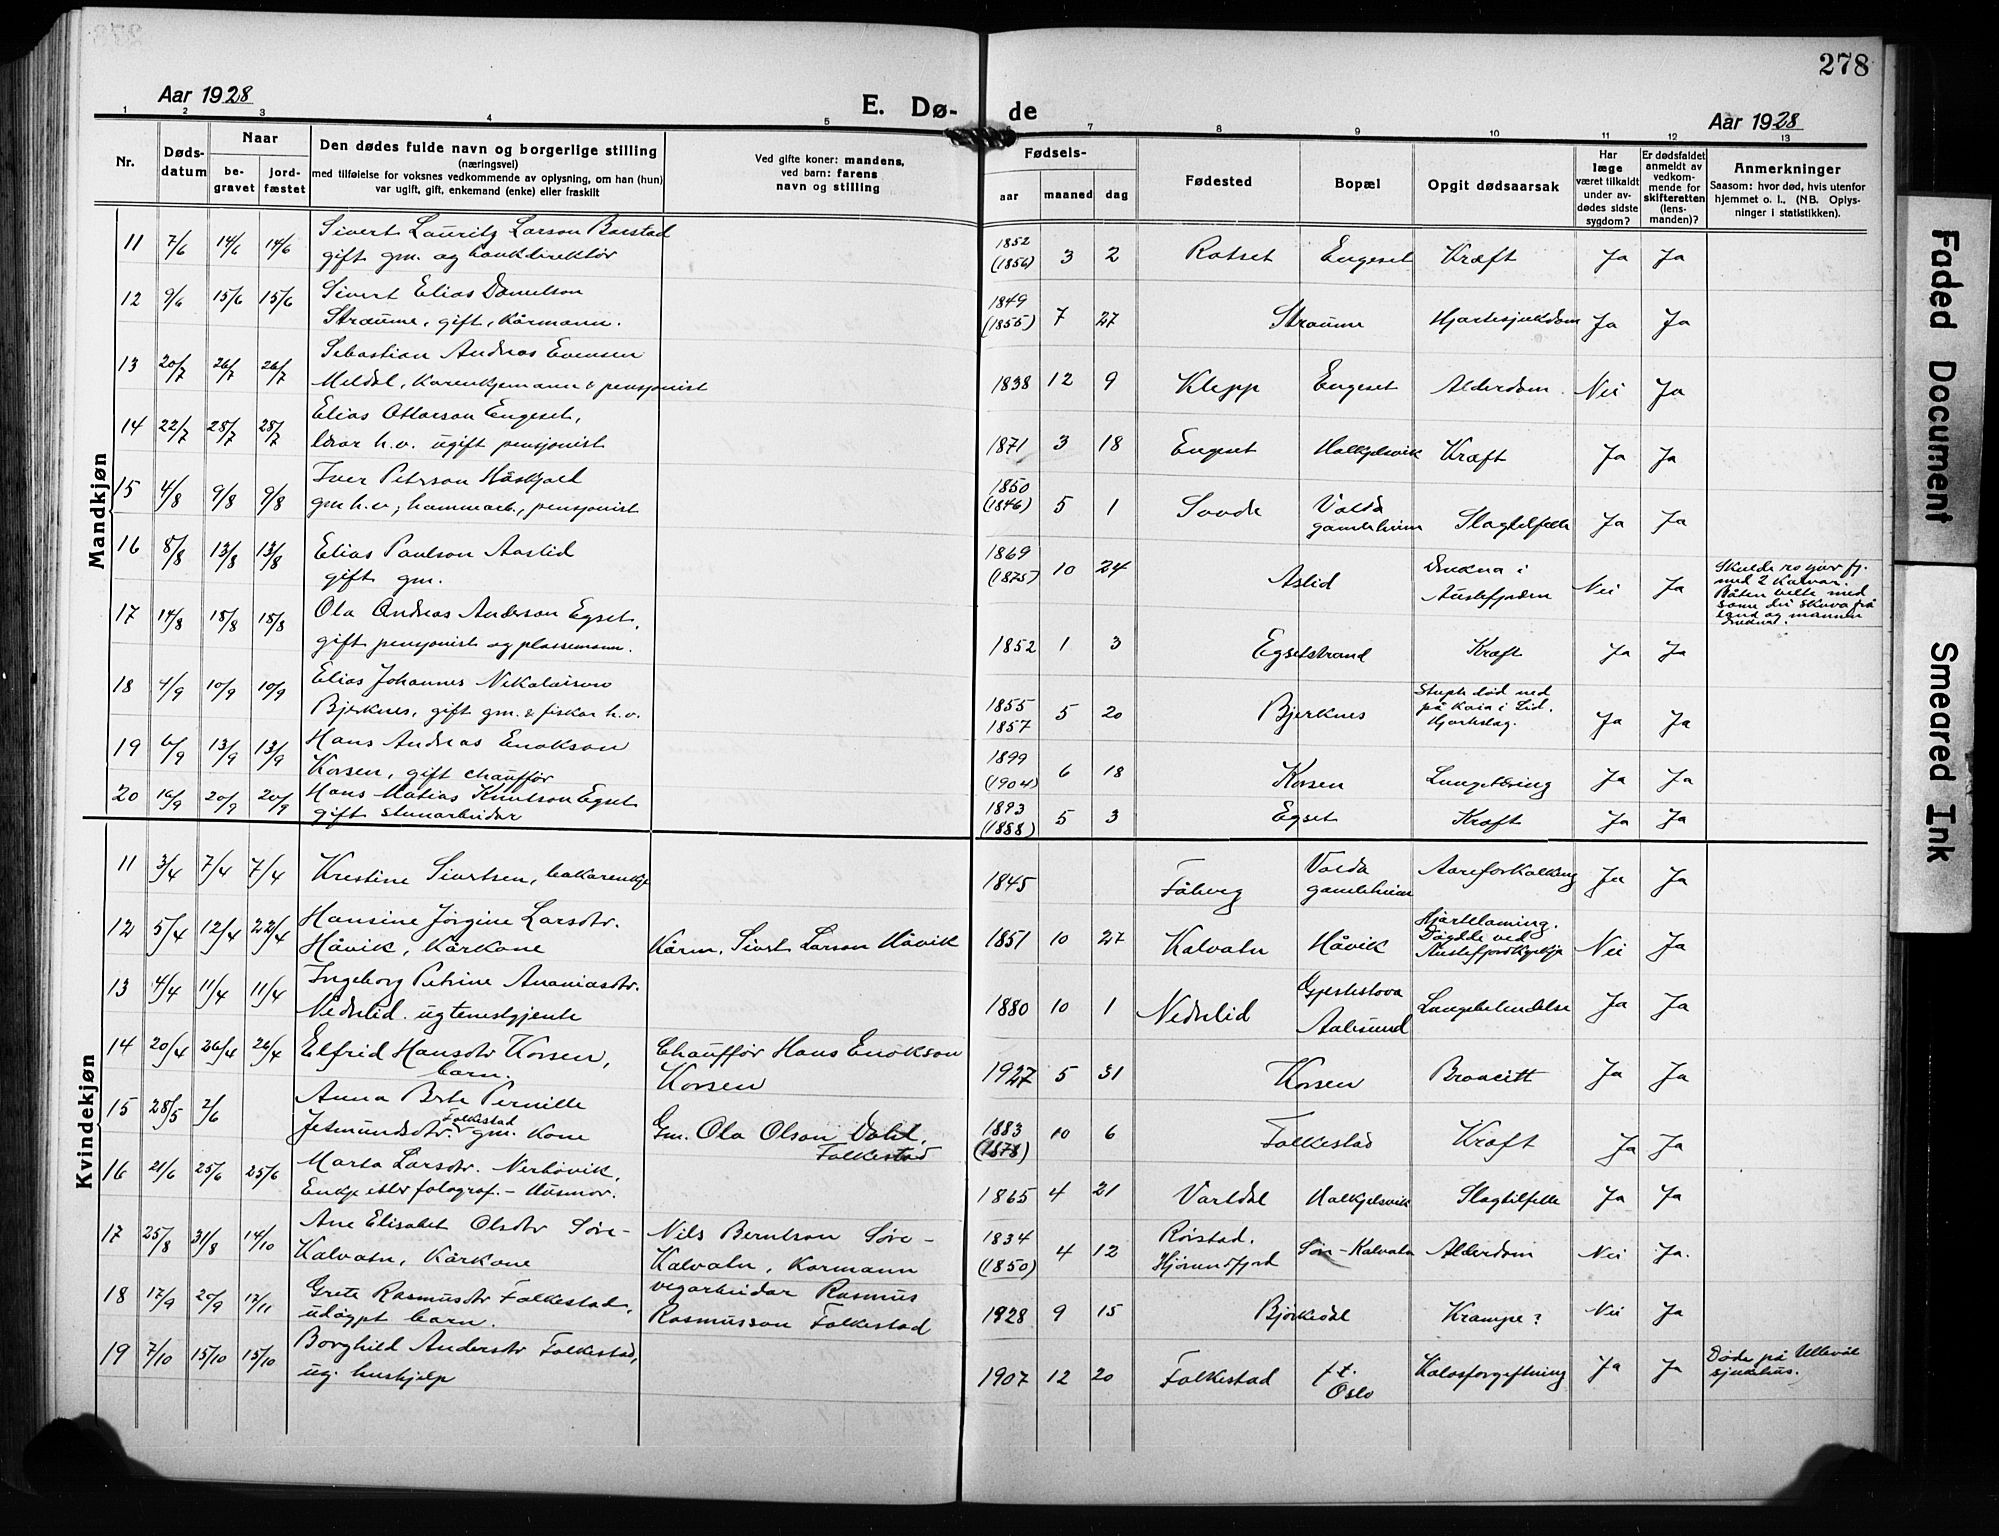 278
Aar 1928
E. Dø- de
Aar 1928
1 2 3 4 5 7 8 9 10 11 12 13
Nr.
Døds-
datum
Naar
be-
gravet
jord-
fæstet
Den dødes fulde navn og borgerlige stilling
(næringsvei)
med tilføielse for voksnes vedkommende av oplysning, om han (hun)
var ugift, gift, enkemand (enke) eller fraskilt
Ved gifte koner: mandens,
ved barn: farens
navn og stilling
Fødsels-
aar maaned dag
Fødested
Bopæl
Opgit dødsaarsak
Har
læge
været tilkaldt
under av-
dødes sidste
sygdom?
Er dødsfaldet
anmeldt av
vedkom-
mende for
skifteretten
(lens-
manden)?
Anmerkninger
Saasom: hvor død, hvis utenfor
hjemmet o. l., (NB. Oplys-
ninger i statistikken).
Mandkjøn
11 7/6 14/6 14/6 Sivert Lauritz Larson Barstad
gift gm. og bankdirektør
1852
(1856) 3 2 Rotset Engeset Kræft Ja Ja
12 9/6 15/6 15/6 Sivert Elias Danielson
Straume, gift, Kårmann.
1849
(1855) 7 27 Straume Hjartesjukdom Ja Ja
13 20/7 26/7 26/7 Sebastian Andreas Evensen
Meldal, Karenkjemann & pensjonist
1838 12 9 Klepp Engeset Alderdom. Nei Ja
14 22/7 28/7 28/7 Elias Ottarson Engeset,
lærar h.v. ugift pensjonist
1871 3 18 Engeset Halkjelsvik Kræft Ja Ja
15 4/8 9/8 9/8 Iver Peterson Håskjold
gm h.v., hammarb., pensjonist
1850
(1846) 5 1 Sovde Volda
gamleheim Slagtilfelle Ja Ja
16 8/8 13/8 13/8 Elias Paulson Aaslid
gift gm.
1869
(1875) 10 24 Aslid Drukna i
Austefjorden Nei Ja Skulde ro yver fj.
med 2 kalvar.
Båten velte med
same dei skuva frå
land og mannen
drukna.
17 14/8 18/8 18/8 Ola Andreas Anderson Egset,
gift pensjonist og plassemann.
1852 1 3 Egsetstrand Kræft Ja Ja
18 4/9 10/9 10/9 Elias Johannes Nikolaison
Bjerknes, gift gm. & fiskar h.v.
1855
1857 5 20 Bjerknes Stupte død ned
på kaia i Lid.
Hjarteslag. Ja Ja
19 6/9 13/9 13/9 Hans Andreas Enokson
Korsen, gift chauffør
1899
(1904) 6 18 Korsen Lungetæring Ja Ja
20 16/9 20/9 20/9 Hans Matias Knutson Egset
gift stenarbeidar
1893
(1888) 5 3 Egset Kræft Ja Ja
Kvindekjøn
11 3/4 7/4 7/4 Kristine Sivertsen, bakarenkje
1845 Fåberg Volda
gamleheim Aareforkalking Ja Ja
12 5/4 12/4 22/4 Hansine Jørgine Larsdtr.
Håvik, Kårkone
Kårm. Sivert Larson Håvik
1851 10 27 Kalvatn Håvik Hjartelaming.
Døydde ved
Austefjordkyrkje Nei Ja
13 4/4 11/4 11/4 Ingeborg Petrine Ananiasdtr.
Nedrelid. ug tenestgjente
1880 10 1 Nedrelid Gjestestova
Aalesund Lungebetendelse Ja Ja
14 20/4 26/4 26/4 Elfrid Hansdtr Korsen,
barn.
Chauffør Hans Enokson
Korsen
1927 5 31 Korsen Broncitt Ja Ja
15 28/5 2/6 Anna Berte Pernille
Jetmundsdtr. Folkestad gm. kone
Gm. Ola Olson Dahl,
Folkestad
1883
(1878) 10 6 Folkestad Kræft Ja Ja
16 21/6 25/6 25/6 Marta Larsdtr. Nerhøvik,
Enkje etter fotograf. - Husmor.
1865 4 21 Vartdal Halkjelsvik Slagtilfelle Ja Ja
17 25/8 31/8 14/10 Ane Elisabet Olsdtr Søre-
Kalvatn, Kårkone
Nils Berntson Søre-
Kalvatn, Kormann
1834
(1850) 4 12 Rørstad.
Hjørundfjord Søre-Kalvatn Alderdom Nei Ja.
18 17/9 20/9 13/11 Grete Rasmusdtr Folkestad,
udøypt barn.
vegarbeidar Rasmus
Rasmusson Folkestad
1928 9 15 Bjørkedal Krampe? Nei Ja
19 7/10 15/10 15/10 Borghild Andersdtr Folkestad,
ug. hushjelp
1907 12 20 Folkestad f.t.
Oslo Kolosforgiftning Ja Ja Døde på Ullevål
sjukehus.
Faded Document
Smeared Ink